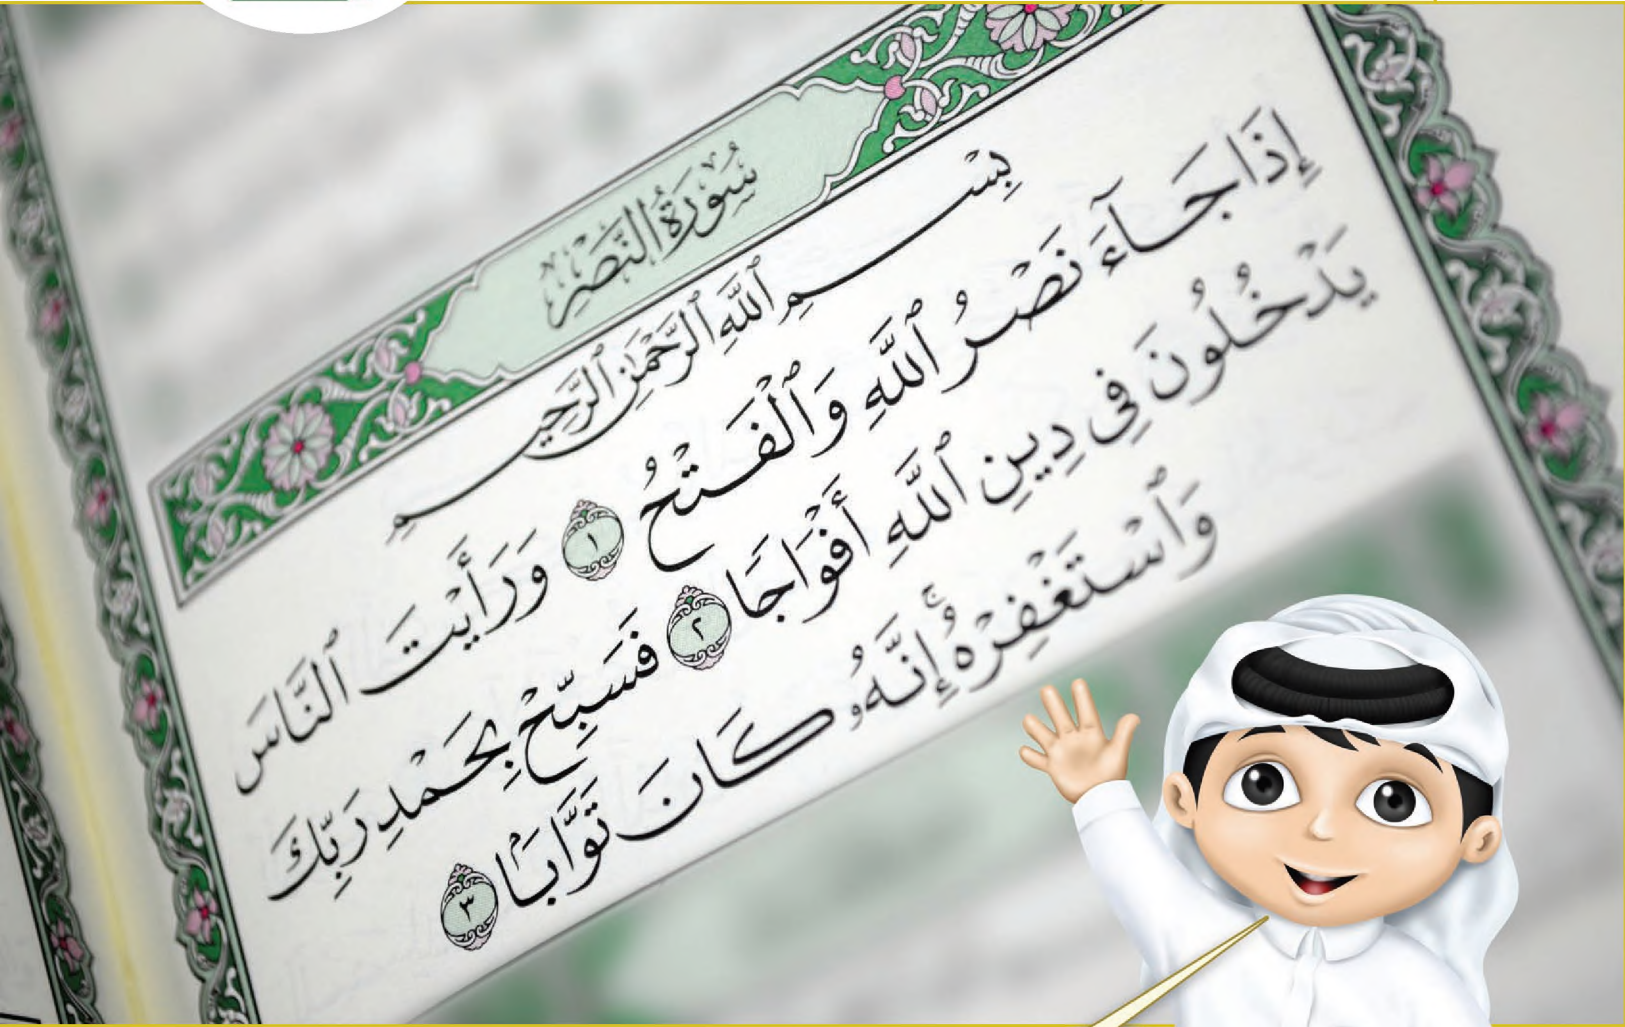 سُورَةُ النَّصْرِ
بِسْمِ ٱللَّهِ ٱلرَّحْمَٰنِ ٱلرَّحِيمِ
إِذَا جَآءَ نَصْرُ ٱللَّهِ وَٱلْفَتْحُ ١ وَرَأَيْتَ ٱلنَّاسَ
يَدْخُلُونَ فِى دِينِ ٱللَّهِ أَفْوَاجًا ٢ فَسَبِّحْ بِحَمْدِ رَبِّكَ
وَٱسْتَغْفِرْهُ ۚ إِنَّهُۥ كَانَ تَوَّابًۢا ٣